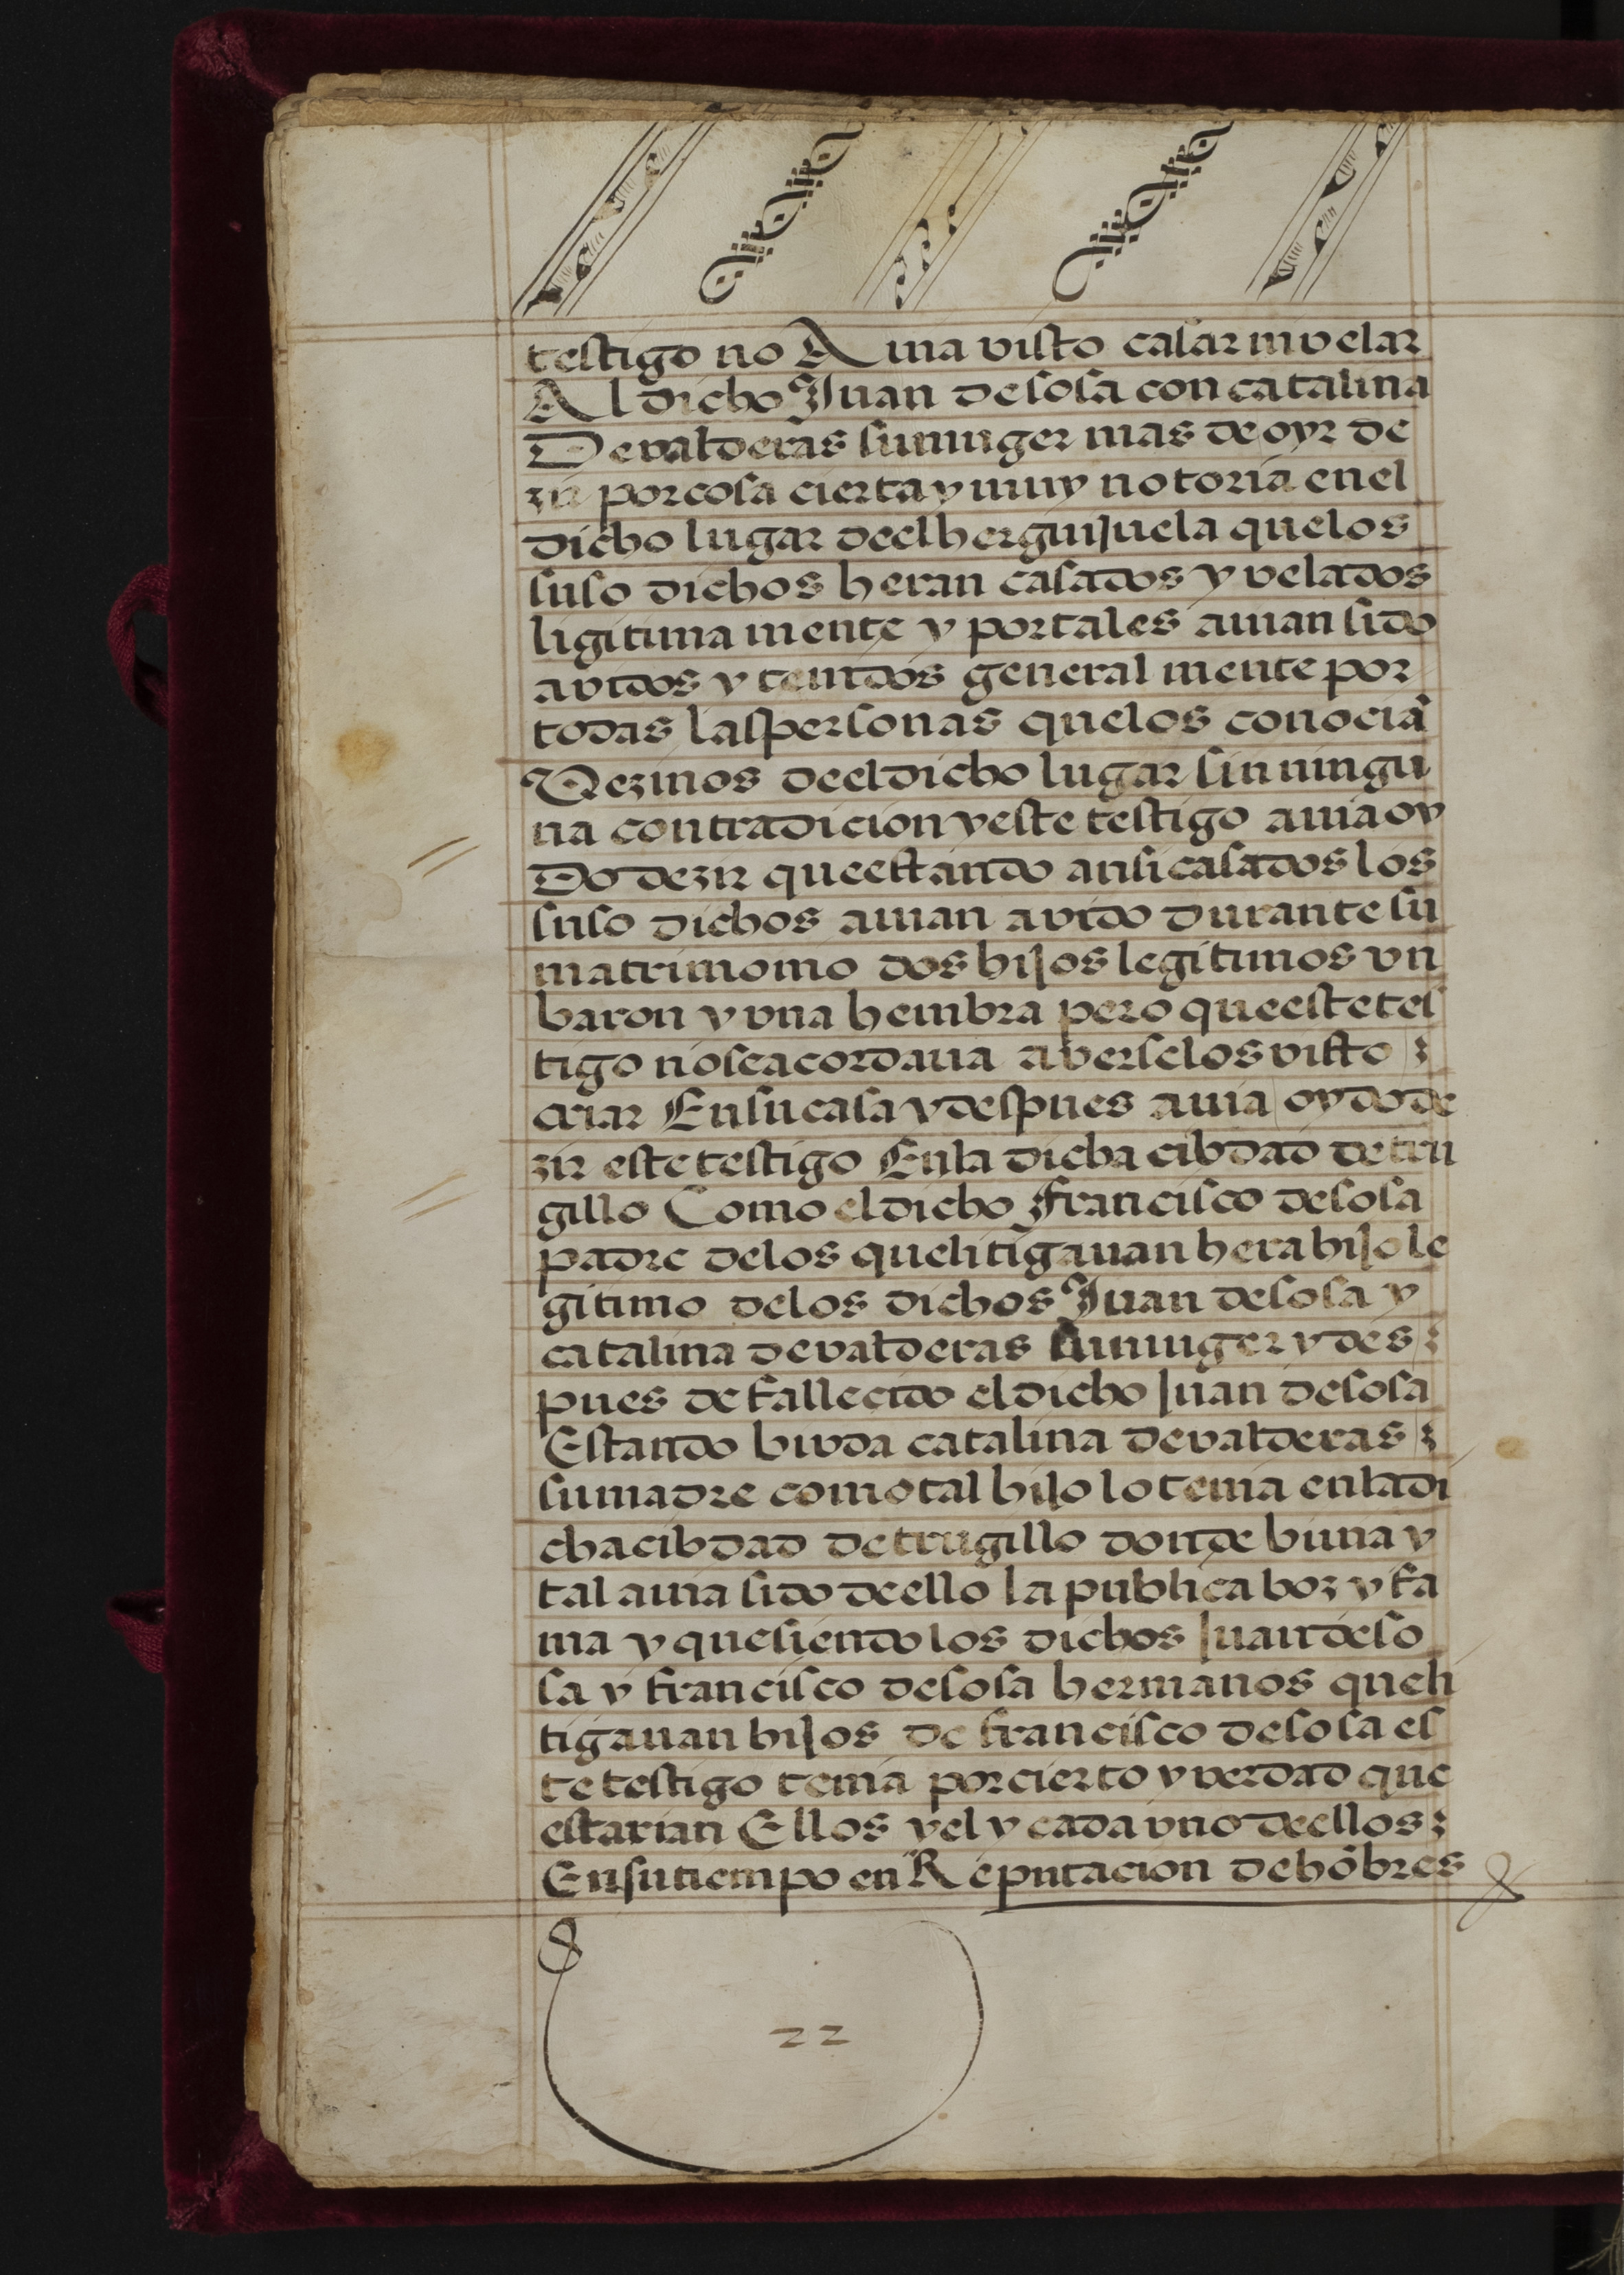 testigo no Avia visto casar ni velar
Al dicho Juan de sosa con catalina
De valderas su muger mas de oyr de
zir por cosa cierta y muy notoria en el
dicho lugar de el herguijuela que los
suso dichos heran casados y velados
ligitima mente y por tales avian sido
avidos y tenidos general mente por
todas las personas que los conociã
Vezinos de el dicho lugar sin ningu
na contradicion y este testigo avia oy
Do dezir que estando ansi casados los
suso dichos avian avido Durante su
matrimonio dos hijos legitimos vn
baron y vna hembra pero que este tes
tigo no se acordava averselos visto
criar En su casa y despues avia oydo de
zir este testigo En la dicha cibdad de tru
gillo Como el dicho Francisco de sosa
padre de los que litigavan hera hijo le
gitimo de los dichos Juan de sosa y
catalina de valderas su muger y des
pues de fallecido el dicho Juan de sosa
Estando bivda catalina de valderas
su madre como tal hijo lo tenia en la di
cha cibdad de trugillo donde bivia y
tal avia sido de ello la publica boz y fa
ma y que siendo los dichos Juan de so
sa y francisco de sosa hermanos que li
tigavan hijos de francisco de sosa es
te testigo tenia por cierto y verdad que
estarian Ellos y el y cada vno de ellos
En su tiempo en Reputacion de hõbres
22